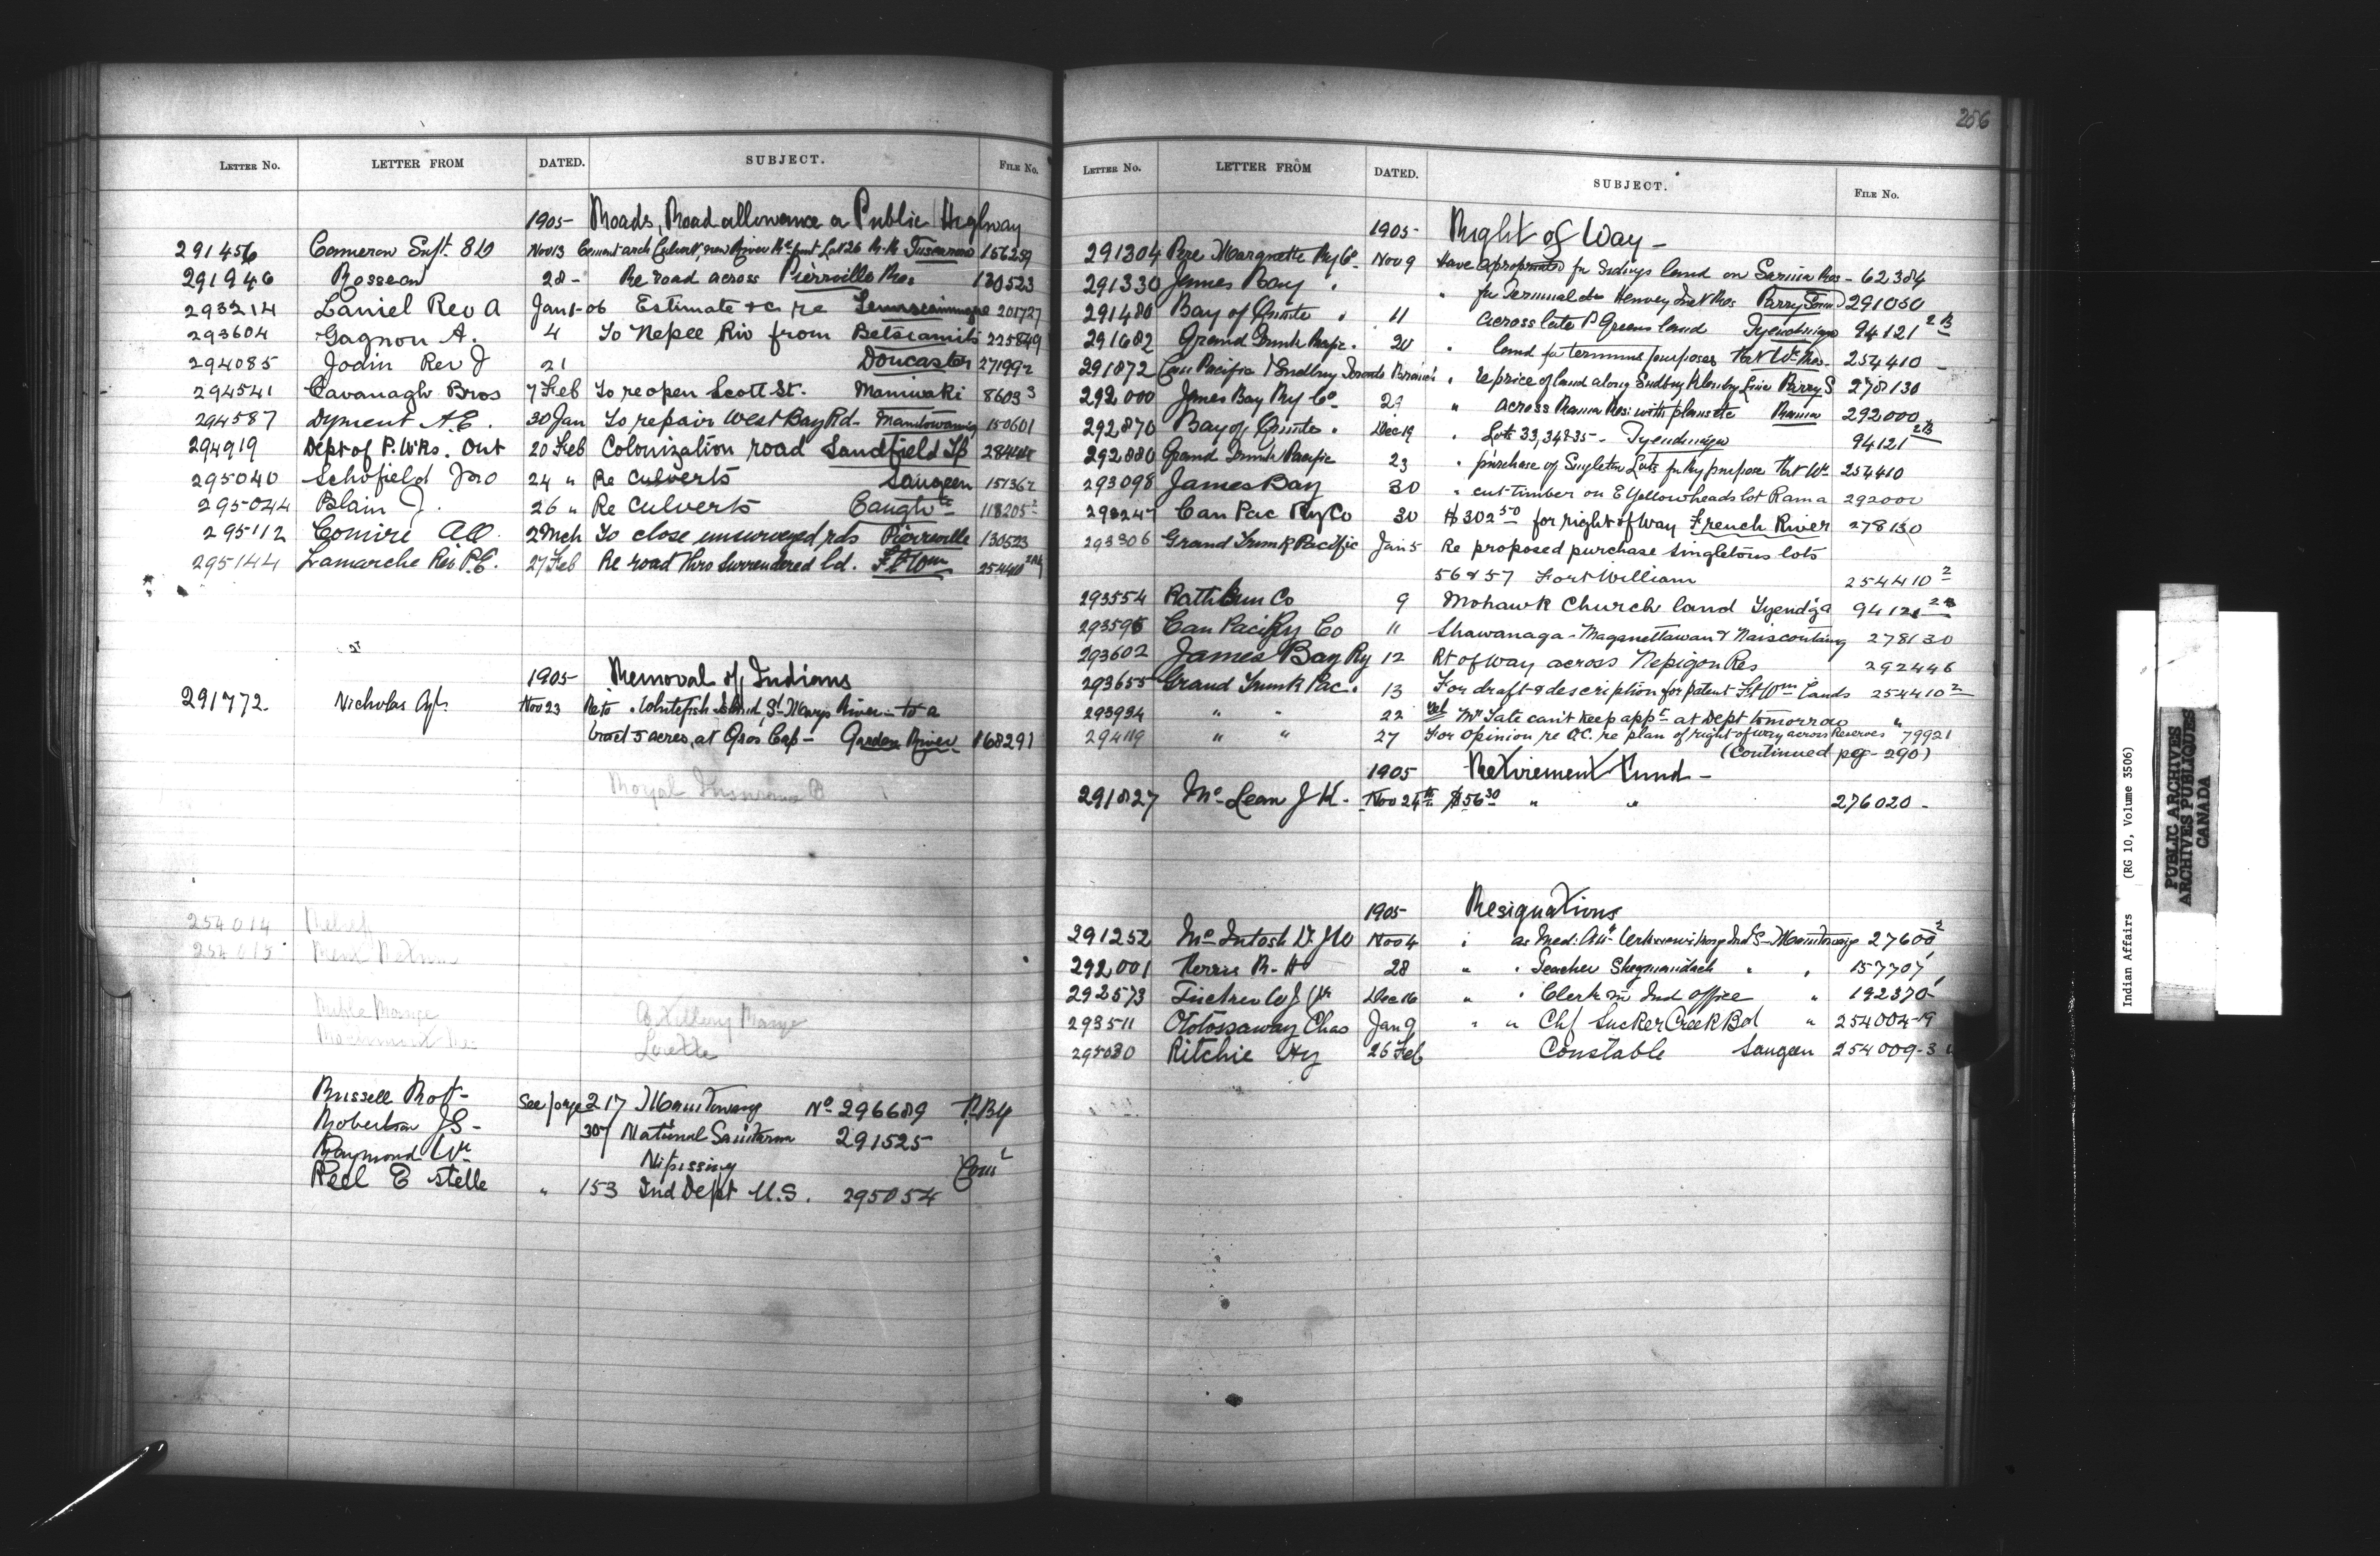 LETTER NO. LETTER FROM DATED. SUBJECT. FILE NO.
1905- Roads, Road allowance or Public Highway
291456 Cameron Supt. 810 Nov 13 Cement arch Culvert, near River Lot 26 Tuscarora 156259
291946 Rosseau 28- Re road across Pierreville Res 130523
293214 Laniel Rev A Jan 1-06 Estimate &c re 201727
293604 Gagnon A. 4 To Nepee Riv from Betsiamits 225849
294085 Jodin Rev J 21 Doncaster 271992
294541 Cavanagh Bros 7 Feb To reopen Scott St. Maniwaki 8603 3
294587 Dyment A.E. 30 Jan To repair West Bay Rd- Manitowaning 150601
294919 Dept of P. Wks. Ont 20 Feb Colonization road Sandfield Tp
295040 Schofield Jno 24 " Re Culverts Saugeen 151362
295044 Blain J. 26 " Re Culverts Caughn 118205
295112 Comire A.O. 2 Mch To close unsurveyed rds Pierreville 130523
295144 Lamarche Rev P.E. 27 Feb Re road thro surrendered ld. Ft Wm 254410
1905- Removal of Indians
291772. Nicholas Agt. Nov 23 Re to. Whitefish Island, St Marys River - to a
tract 5 acres, at Gros Cap- Garden River 168291
Royal Insurance Co
254014 Relief
254015 Rent Return
Rifle Range Artillery Range
Lorette
Russell Robt- See page 217 Manitowang No 296689
Robertson J S- 307 National Sanitarm 291525
Raymond Wm Nipissing
Reel Estelle " 153 Ind Dept U.S. 295054
206
LETTER NO. LETTER FROM DATED. SUBJECT. FILE NO.
1905- Right of Way-
291304 Pere Marquette Ry Co. Nov 9 Have appropriated for Sidings land on Sarnia Res- 62384
291330 James Bay " for Terminal &c Henvey Inlet Res Parry Sound 291050
291480 Bay of Quinte " 11 across late P Greens land Tyendinaga 94121 2B
291682 Grand Trunk Pacfc. 20 " land for terminus purposes Ft Wm Res. 254410
291872 Can Pacific Sudbury Toronto Branch " re price of land along Sudbury Kleinburg Line Parry S 278130
292000 James Bay Ry Co 29 " across Rama Res: with plans &c Rama 292000
292870 Bay of Quinte " Dec 19 " Lots 33,34&35- Tyendinaga 94121 2B
292880 Grand Trunk Pacific 23 " purchase of Singleton Lots for Ry purpose Ft Wm 254410
293098 James Bay 30 " cut timber on E Yellowheads lot Rama 292000
293247 Can Pac Ry Co 30 $302 50 for right of way French River 278130
293306 Grand Trunk Pacific Jan 5 Re proposed purchase Singletons lots
56 & 57 Fort William 254410 2
293554 Rathbun Co 9 Mohawk Church land Tyend'ga 94121
293595 Can Pacific Ry Co 11 Shawanaga- Maganettawan & Naiscoutaing 278130
293602 James Bay Ry 12 Rt of way across Nepigon Res 292446
293655 Grand Trunk Pac. 13 For draft & description for patent Ft Wm Lands 254410 2
293934 " " 22 Tel Mr Tate can't keep appt at Dept tomorrow "
294119 " " 27 For Opinion re O.C. re plan of right of way across Reserves 79921
(Continued pg- 290)
1905 Retirement Fund-
291827 Mc Lean J K. Nov 24th $156 30 " " 276020-
1905- Resignations
291252 Mc Intosh Dr. J W Nov 4 as Med: Att Wikwemikong Inds- Manitowaning
292001 Ferris R. H 28 " " Teacher Shegiuandah " " 157707
292573 Dec 16 " " Clerk in Ind Office " 192370
293511 Ototossaway Chas Jan 9 " " Chf Sucker Creek Bd " 254004-19
295030 Ritchie Hy 26 Feb Constable Saugeen 254009-3
Indian Affairs (RG 10, Volume 3506)
PUBLIC ARCHIVES
ARCHIVES PUBLIQUES
CANADA